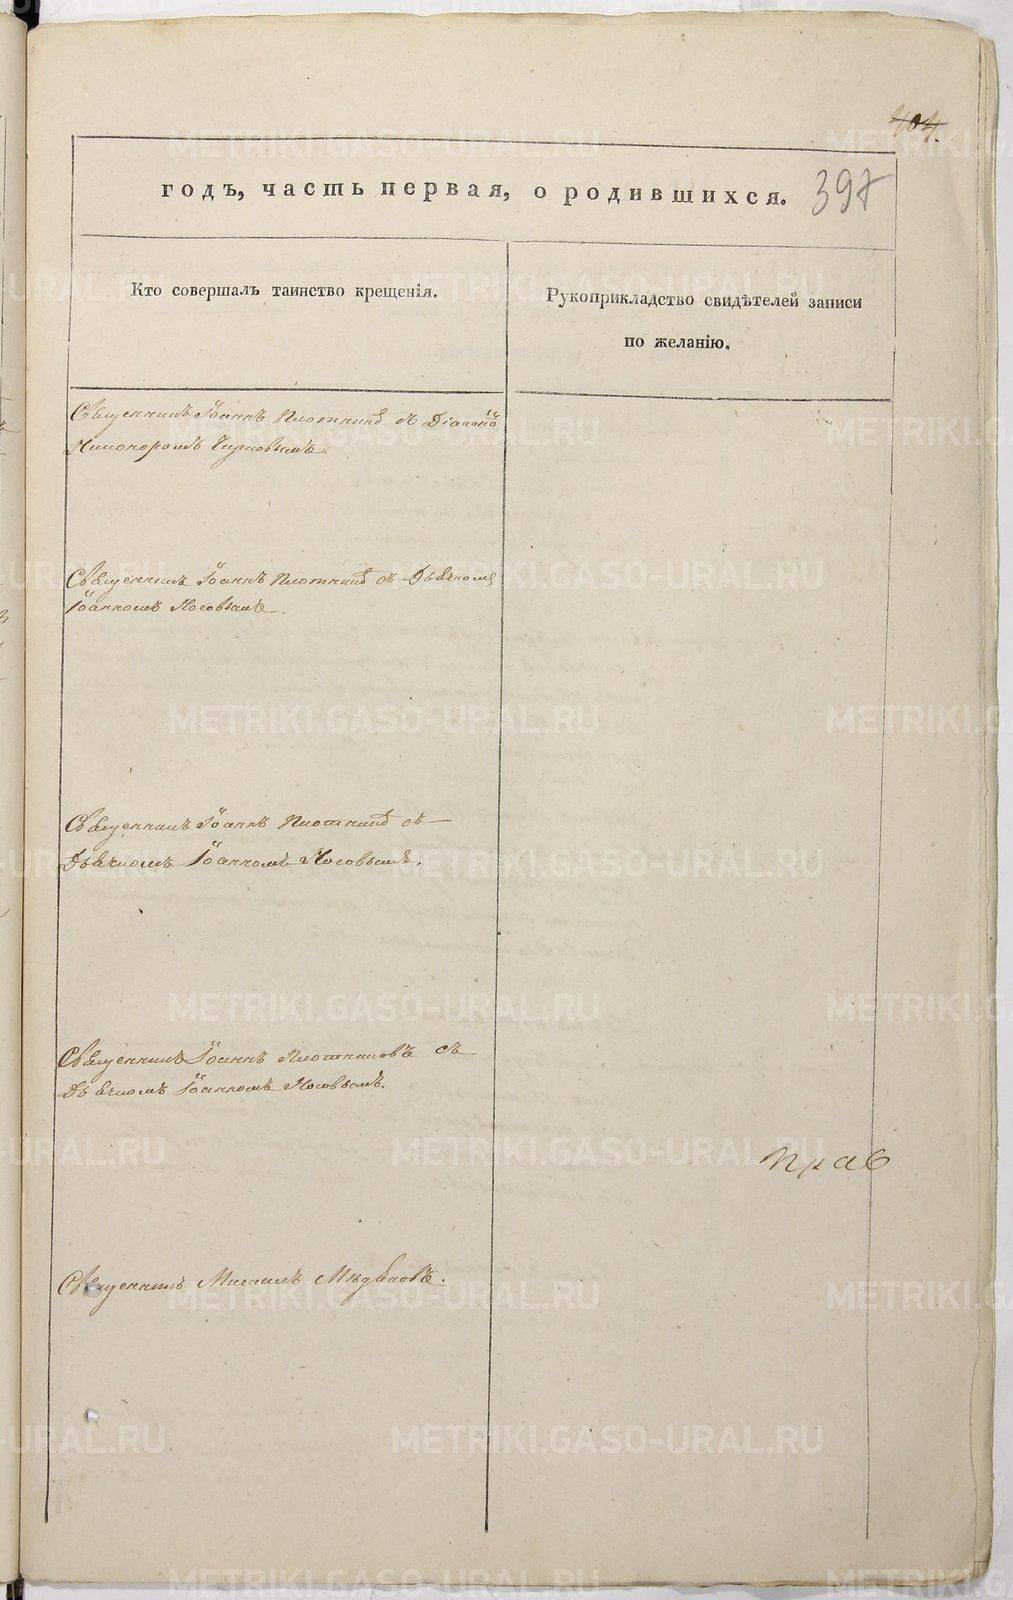 404.
годъ, часть первая, о родившихся. 397
Кто совершалъ таинство крещенія.
Рукоприкладство свидѣтелей записи
по желанію.
Священникъ Іоаннъ Плотниковъ съ Діакономъ
Никаноромъ
Священникъ Іоаннъ Плотниковъ съ Дьячкомъ
Іоанномъ Носовымъ.
Священникъ Іоаннъ Плотниковъ съ
Дьячкомъ Іоанномъ Носовымъ.
Священникъ Іоаннъ Плотниковъ съ
Дьячкомъ Іоанномъ Носовымъ.
прав
Священникъ Михаилъ
METRIKI.GASO-URAL.RU